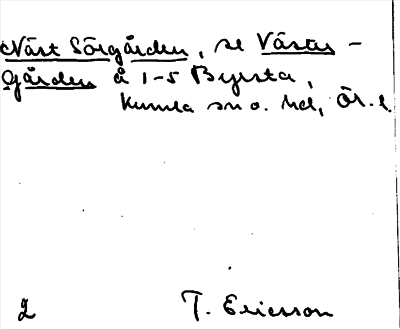 Näst Sörgården, se Västes-
gården å 1-5 Byrsta,
Kumla sn o. hd, Ör. l.
2 T. Ericsson